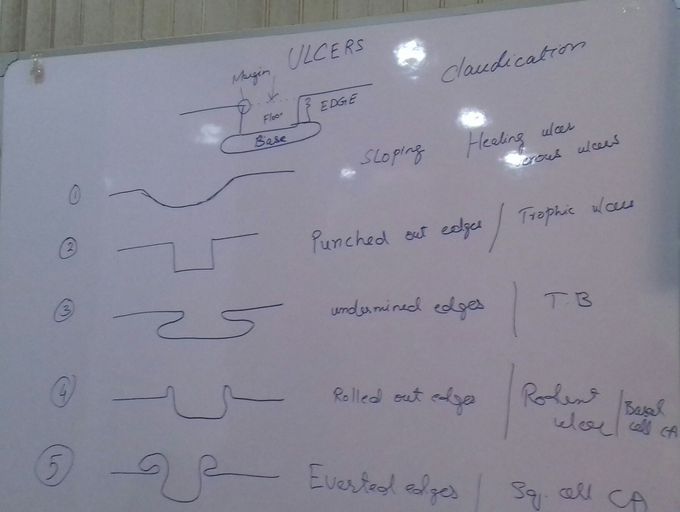 ULCERS
Margin
Claudication
Floor
EDGE
Base
① Sloping Healing ulcer
venous ulcers
② Punched out edges / Trophic ulcer
③ undermined edges / T.B
④ Rolled out edges / Rodent ulcer / Basal cell CA
⑤ Everted edges / Sq. cell CA